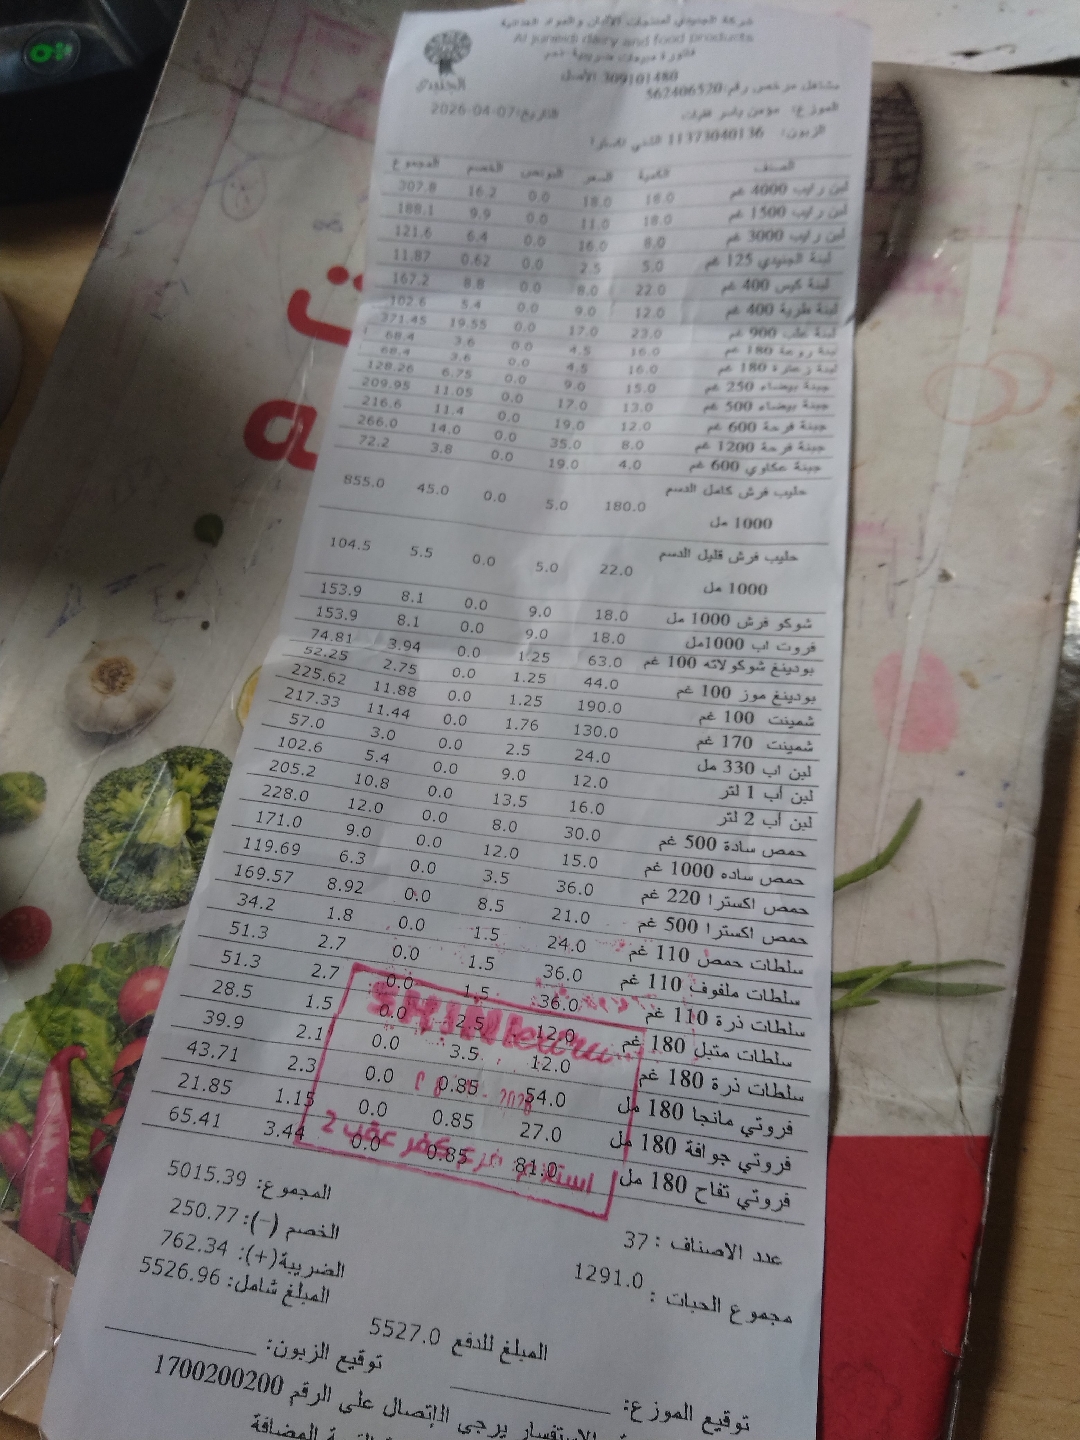 شركة الجنيدي لمنتجات الألبان والمواد الغذائية
Al juneidi dairy and food products
الجنيدي
309101480 الأصل
مشتغل مرخص رقم: 562406520
التاريخ: 2026-04-07
الزبون: 11373040136
الصنف الكمية السعر البونص الخصم المجموع
لبن رايب 4000 غم 18.0 18.0 0.0 16.2 307.8
لبن رايب 1500 غم 18.0 11.0 0.0 9.9 188.1
لبن رايب 3000 غم 8.0 16.0 0.0 6.4 121.6
لبنة الجنيدي 125 غم 5.0 2.5 0.0 0.62 11.87
لبنة كيس 400 غم 22.0 8.0 0.0 8.8 167.2
لبنة طرية 400 غم 12.0 9.0 0.0 5.4 102.6
لبنة علب 900 غم 23.0 17.0 0.0 19.55 371.45
لبنة روعة 180 غم 16.0 4.5 0.0 3.6 68.4
لبنة زعترة 180 غم 16.0 4.5 0.0 3.6 68.4
جبنة بيضاء 250 غم 15.0 9.0 0.0 6.75 128.26
جبنة بيضاء 500 غم 13.0 17.0 0.0 11.05 209.95
جبنة فرحة 600 غم 12.0 19.0 0.0 11.4 216.6
جبنة فرحة 1200 غم 8.0 35.0 0.0 14.0 266.0
جبنة عكاوي 600 غم 4.0 19.0 0.0 3.8 72.2
حليب فرش كامل الدسم 180.0 5.0 0.0 45.0 855.0
1000 مل
حليب فرش قليل الدسم 22.0 5.0 0.0 5.5 104.5
1000 مل
شوكو فرش 1000 مل 18.0 9.0 0.0 8.1 153.9
فروت اب 1000مل 18.0 9.0 0.0 8.1 153.9
بودينغ شوكولاته 100 غم 63.0 1.25 0.0 3.94 74.81
بودينغ موز 100 غم 44.0 1.25 0.0 2.75 52.25
شمينت 100 غم 190.0 1.25 0.0 11.88 225.62
شمينت 170 غم 130.0 1.76 0.0 11.44 217.33
لبن اب 330 مل 24.0 2.5 0.0 3.0 57.0
لبن اب 1 لتر 12.0 9.0 0.0 5.4 102.6
لبن اب 2 لتر 16.0 13.5 0.0 10.8 205.2
حمص سادة 500 غم 30.0 8.0 0.0 12.0 228.0
حمص ساده 1000 غم 15.0 12.0 0.0 9.0 171.0
حمص اكسترا 220 غم 36.0 3.5 0.0 6.3 119.69
حمص اكسترا 500 غم 21.0 8.5 0.0 8.92 169.57
سلطات حمص 110 غم 24.0 1.5 0.0 1.8 34.2
سلطات ملفوف 110 غم 36.0 1.5 0.0 2.7 51.3
سلطات ذرة 110 غم 36.0 1.5 0.0 2.7 51.3
سلطات متبل 180 غم 12.0 2.5 0.0 1.5 28.5
سلطات ذرة 180 غم 12.0 3.5 0.0 2.1 39.9
فروتي مانجا 180 مل 54.0 0.85 0.0 2.3 43.71
فروتي جوافة 180 مل 27.0 0.85 0.0 1.15 21.85
فروتي تفاح 180 مل 81.0 0.85 0.0 3.44 65.41
استلام فرع كفر عقب 2
عدد الاصناف : 37
مجموع الحبات : 1291.0
المجموع: 5015.39
الخصم (-): 250.77
الضريبة(+): 762.34
المبلغ شامل: 5526.96
المبلغ للدفع 5527.0
توقيع الزبون:
توقيع الموزع:
الاستفسار يرجى الإتصال على الرقم 1700200200
المضافة